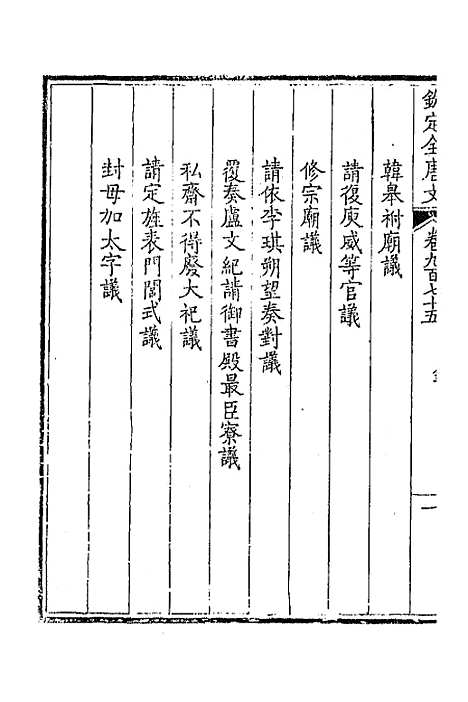 欽定全唐文 卷九百七十五 一
韓皋祔廟議
請復庾威等官議
修宗廟議
請依李琪朔望奏對議
覆奏盧文紀請御書殿最臣寮議
私齋不得廢大祀議
請定旌表門閭式議
封毋加太字議